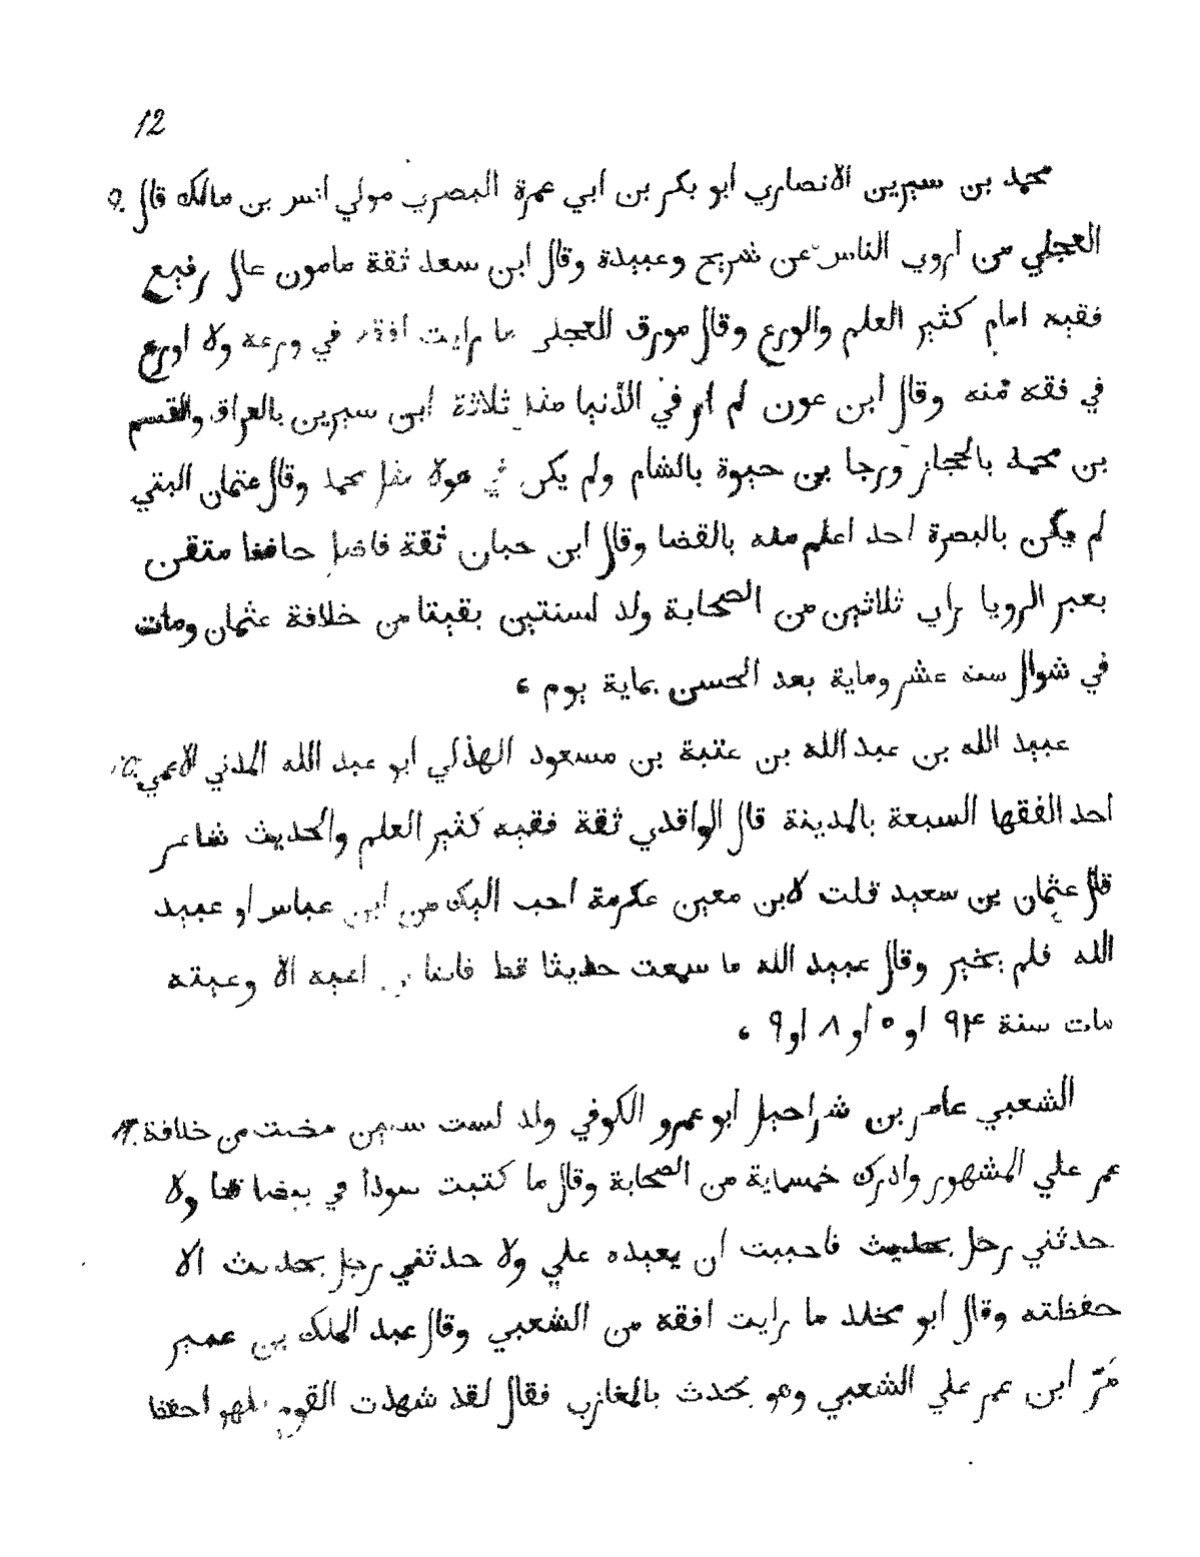 12
محمد بن سيرين الانصاري ابو بكر بن ابي عمرة البصري مولي انس بن مالك قال ٩.
العجلي من اروي الناس عن شريح وعبيدة وقال ابن سعد ثقة مامون عال رفيع
فقيه امام كثير العلم والورع وقال مورق العجلي ما رايت افقه في ورعه ولا اورع
في فقه منه وقال ابن عون لم ار في الدنيا مثل ثلاثة ابن سيرين بالعراق والقسم
بن محمد بالحجاز ورجا بن حيوة بالشام ولم يكن في هولا مثل محمد وقال عثمان البتي
لم يكن بالبصرة احد اعلم منه بالقضا وقال ابن حبان ثقة فاضل حافظ متقن
يعبر الرويا راي ثلاثين من الصحابة ولد لسنتين بقيتا من خلافة عثمان ومات
في شوال سنة عشر وماية بعد الحسن بماية يوم ،
عبيد الله بن عبد الله بن عتبة بن مسعود الهذلي ابو عبد الله المدني الاعمي
احد الفقها السبعة بالمدينة قال الواقدي ثقة فقيه كثير العلم والحديث شاعر
قال عثمان بن سعيد قلت لابن معين عكرمة احب اليك من ابن عباس او عبيد
الله فلم يخير وقال عبيد الله ما سمعت حديثا قط فاشا اعيه الا وعيته
مات سنة ٩۴ او ٥ او ٨ او ٩ ،
الشعبي عامر بن شراحيل ابو عمرو الكوفي ولد لست سنين مضت من خلافة
عمر علي المشهور وادرك خمسماية من الصحابة وقال ما كتبت سودا في بيضا قط ولا
حدثني رجل بحديث فاحببت ان يعيده علي ولا حدثني رجل بحديث الا
حفظته وقال ابو مخلد ما رايت افقه من الشعبي وقال عبد الملك بن عمير
مرّ ابن عمر علي الشعبي وهو يحدث بالمغازي فقال لقد شهدت القوم فلهو احفظ